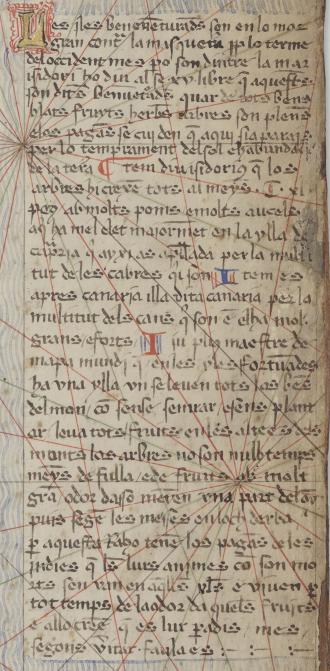 Les yles beneventurades son en lo mar
gran contra la ma sques ta pp lo terme
del occident mes po son dintre la mar
isidori ho diu al seu xv libre que aquestes
son dites benuetads quar de tots bens
blats fruyts herbes arbres son plenes
e los pagans se cuyden que aqui sia parais
per lo temprament del sol e habundacia
de la tera Item diu isidorius que los
arbres hi creixe tots al meys · C · xl
peus ab molts poms e molts aucels
aq ha mel e let majorment en la ylla de
capria que ayxi es apellada per la multi
tut de les cabres qi son Item es
apres canaria illa dita canaria per la
multitut dels cans que son en ella mol
grans e forts diu pliny maestre de
mapa mundi que en les yles fortunades
ha una ylla un se leven tots los bes
del mon co sense semrar e sens plant
ar leva tots fruits en les altees dels
monts los arbres no son nulh temps
meyns de fulla e de fruits ab molt
gra odor daiso menen una part del ay
puis sege les meses en loch derba
per aquesta Raho tenen los pagas de les
indies que les lurs animes co son mo
rts sen van en aqueles yles e viven per
tot temps de la odor daquels fruits
e allo creen que es lur paradis mes
segons veritat faula es